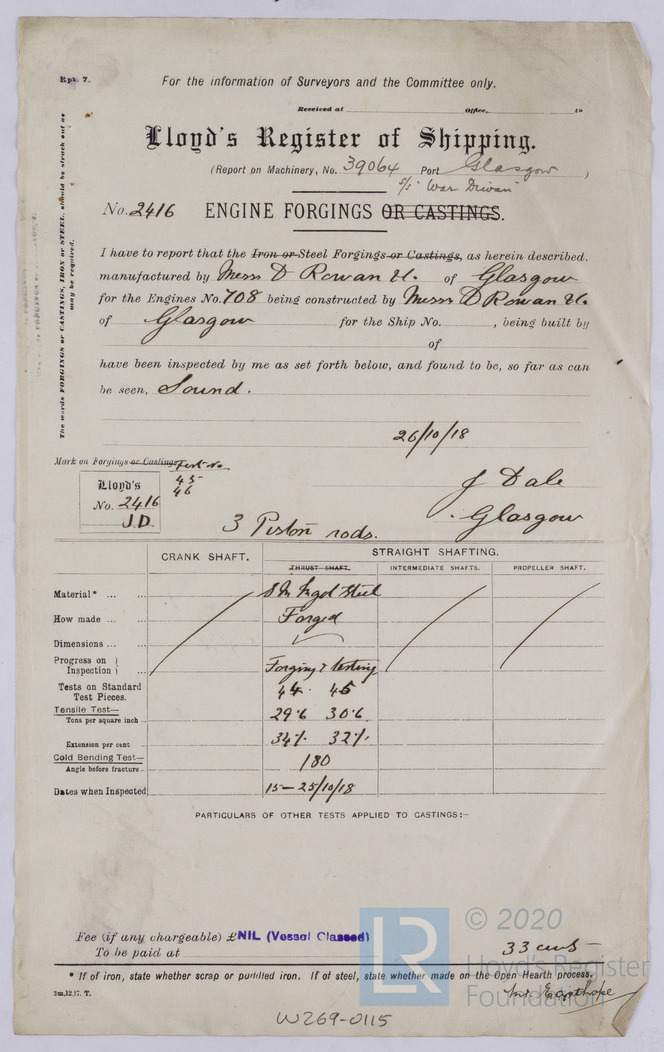 Rpt. 7.
For the information of Surveyors and the Committee only.
Received at Office, 19
Lloyd's Register of Shipping.
(Report on Machinery, No. 39064 Port Glasgow )
s/s "War Diwan"
No. 2416 ENGINE FORGINGS OR CASTINGS.
The words FORGINGS or CASTINGS, IRON or STEEL, should be struck out as may be required.
I have to report that the Iron or Steel Forgings or Castings, as herein described,
manufactured by Messrs D Rowan & Co. of Glasgow
for the Engines No. 708 being constructed by Messrs D Rowan & Co.
of Glasgow for the Ship No. , being built by
of
have been inspected by me as set forth below, and found to be, so far as can
be seen, Sound.
26/10/18
Mark on Forgings or Castings, Test No.
45
46
Lloyd's
No. 2416
J.D.
J Dale
Glasgow
3 Piston rods.
CRANK SHAFT. STRAIGHT SHAFTING.
THRUST SHAFT. INTERMEDIATE SHAFTS. PROPELLER SHAFT.
Material* ... ... S M Ingot Steel
How made ... ... Forged
Dimensions ... ...
Progress on Inspection ... Forging & testing
Tests on Standard Test Pieces. 44. 45
Tensile Test—
Tons per square inch 29.6 30.6
Extension per cent 34% 32%
Cold Bending Test—
Angle before fracture 180
Dates when Inspected 15-25/10/18
PARTICULARS OF OTHER TESTS APPLIED TO CASTINGS:—
Fee (if any chargeable) £ NIL (Vessel Classed)
To be paid at
33 cwts
* If of iron, state whether scrap or puddled iron. If of steel, state whether made on the Open Hearth process.
3m,12,17. T.
W269-0115
LR © 2020
Lloyd's Register
Foundation